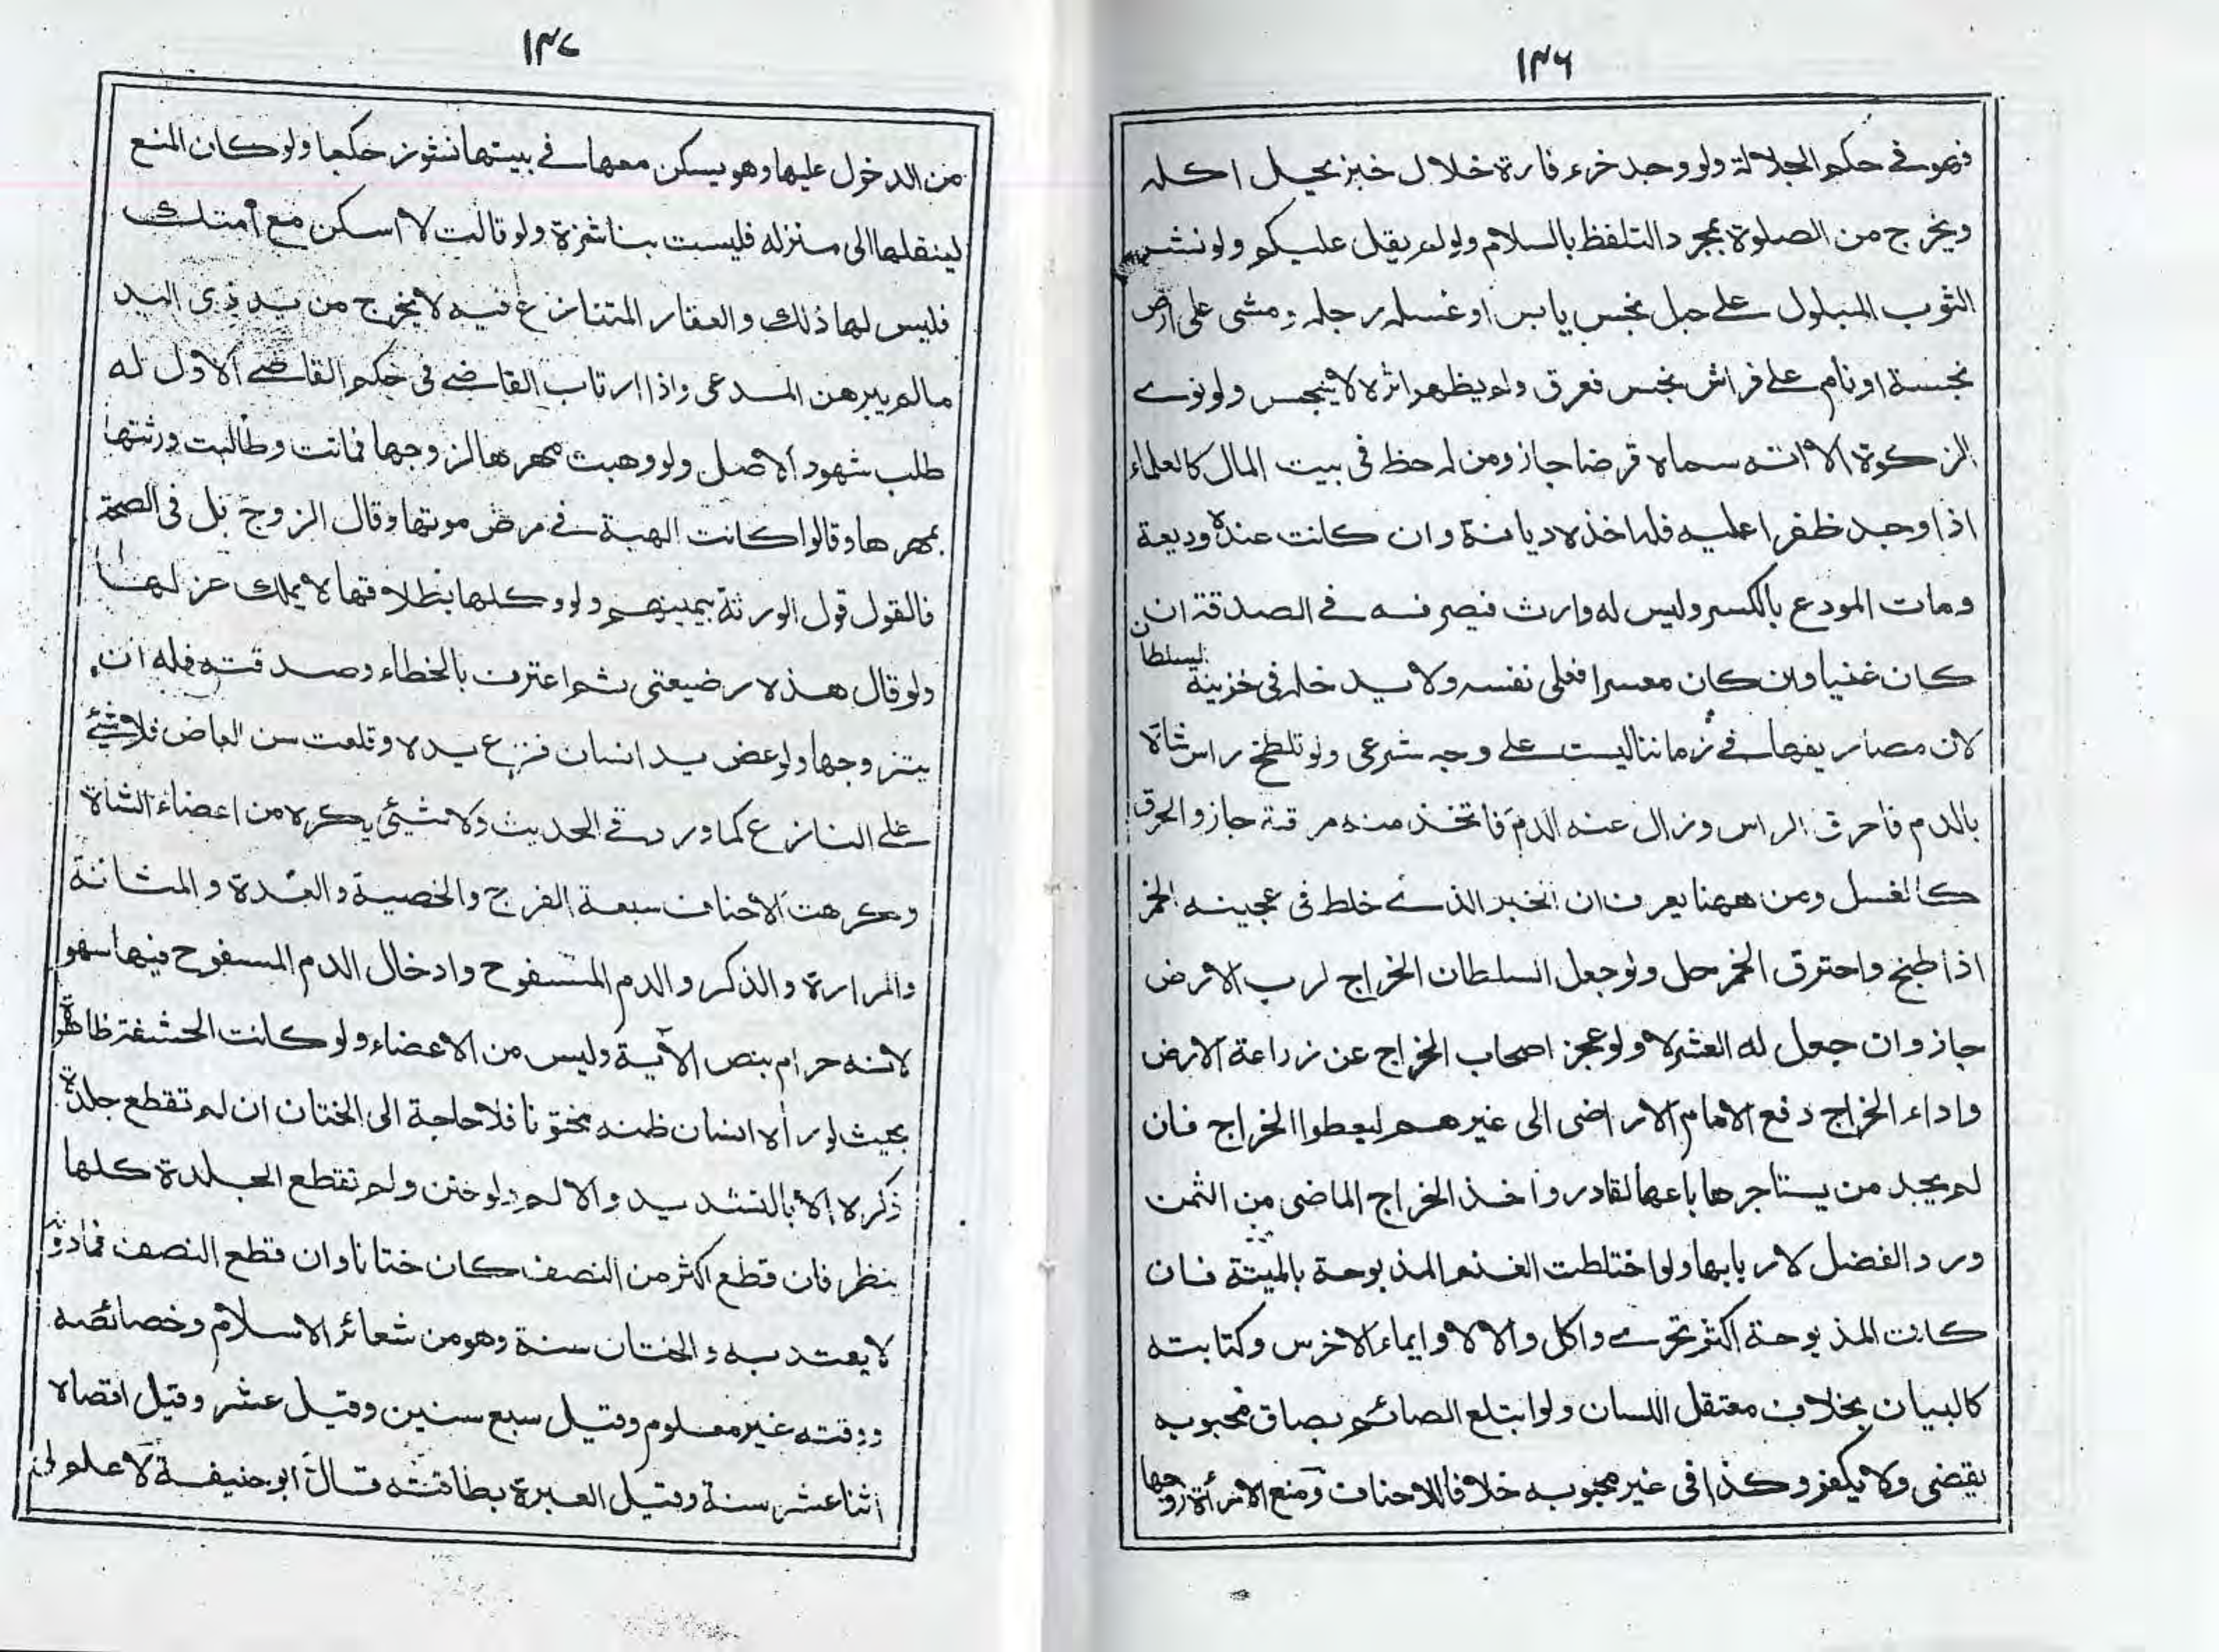 ١٣٦
فهو في حكم الجلالة ولو وجد خرء فارة خلال خبز يحل اكله
ويخرج من الصلوة بمجرد التلفظ بالسلام ولو لم يقل عليكم ولو نشر
الثوب المبلول على حبل نجس يابس او غسل رجله ومشى على ارض
نجسة او نام على فراش نجس فعرق ولم يظهر اثره لا ينجس ولو نوى
الزكوة الا انه سماه قرضا جاز ومن له حظ في بيت المال كالعلماء
اذا وجد ظفرا عليه فله اخذه ديانة وان كانت عنده وديعة
ومات المودع بالكسر وليس له وارث فيصرفه في الصدقة ان
كان غنيا وان كان معسرا فعلى نفسه ولا يدخله في خزينة السلطان
لان مصاريفها في زماننا ليست على وجه شرعى ولو تلطخ راس شاة
بالدم فاحرق الراس وزال عنه الدم فاتخذ منه مرقة جاز والحرق
كالغسل ومن ههنا يعرف ان الخبز الذي خلط في عجينه الخمر
اذا طبخ واحترق الخمر حل ولو جعل السلطان الخراج لرب الارض
جاز وان جعل له العشر لا ولو عجز اصحاب الخراج عن زراعة الارض
واداء الخراج دفع الامام الاراضى الى غيرهم ليعطوا الخراج فان
لم يجد من يستاجرها باعها لقادر واخذ الخراج الماضى من الثمن
ورد الفضل لاربابها ولو اختلطت الغنم المذبوحة بالميتة فان
كانت المذبوحة اكثر تحرى واكل والا لا وايماء الاخرس وكتابته
كالبيان بخلاف معتقل اللسان ولو ابتلع الصائم بصاق محبوبه
يقضى ولا يكفر وكذا في غير محبوبه خلافا للاحناف ومنع الامرأة زوجها
١٣٧
من الدخول عليها وهو يسكن معها في بيتها نشوز حكما ولو كان المنع
لينقلها الى منزله فليست بناشزة ولو قالت لا اسكن مع امتك
فليس لها ذلك والعقار المتنازع فيه لا يخرج من يد ذى اليد
مالم يبرهن المدعى واذا ارتاب القاضي في حكم القاضي الاول له
طلب شهود الاصل ولو وهبت مهرها لزوجها فماتت وطالبت ورثتها
بمهرها وقالوا كانت الهبة في مرض موتها وقال الزوج بل في الصحة
فالقول قول الورثة بيمينهم ولو وكلها بطلاقها لا يملك عزلها
ولو قال هذه رضيعتى ثم اعترف بالخطاء وصدقته فله ان
يتزوجها ولو عض يد انسان فنزع يده وقلعت سن العاض فلا شيئ
على النازع كما ورد في الحديث ولا شيئ يكره من اعضاء الشاة
وكرهت الاحناف سبعة الفرج والخصية والغدة والمثانة
والمرارة والذكر والدم المسفوح وادخال الدم المسفوح فيها سهو
لانه حرام بنص الآية وليس من الاعضاء ولو كانت الحشفة ظاهرة
بحيث لو رأه انسان ظنه مختونا فلا حاجة الى الختان ان لم تقطع جلدة
ذكره الا بالتشديد والالم ولو ختن ولم تقطع الجلدة كلها
ينظر فان قطع اكثر من النصف كان ختانا وان قطع النصف فمادونه
لا يعتد به والختان سنة وهو من شعائر الاسلام وخصائصه
ووقته غير معلوم وقيل سبع سنين وقيل عشر وقيل اقصاه
اثنا عشر سنة وقيل العبرة بطاقته قال ابو حنيفة لا علم لى